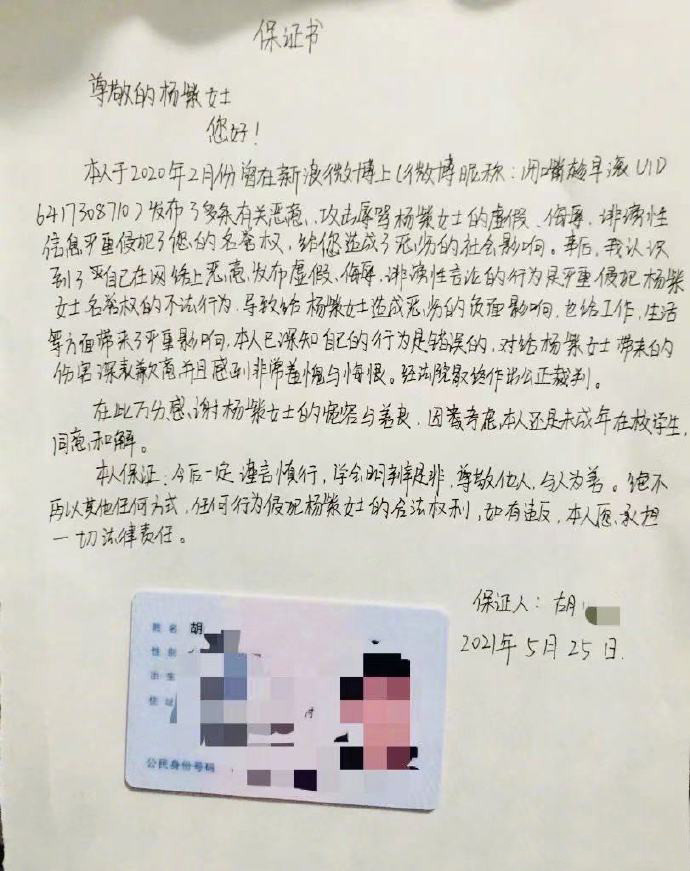 保证书
尊敬的杨紫女士
您好！
本人于2020年2月份曾在新浪微博上（微博昵称：用嘴趁早滚UID
6417308710）发布了多条有关恶意、攻击辱骂杨紫女士的虚假、侮辱、诽谤性
信息严重侵犯了您的名誉权，给您造成了恶劣的社会影响。事后，我认识
到了自己在网络上恶意发布虚假、侮辱、诽谤性言论的行为是严重侵犯杨紫
女士名誉权的不法行为，导致给杨紫女士造成恶劣的负面影响，也给工作，生活
等方面带来了严重影响，本人已深知自己的行为是错误的，对给杨紫女士带来的
伤害深表歉意并且感到非常羞愧与悔恨。经法院最终作出公正裁判。
在此万分感谢杨紫女士的宽容与善良，因考虑本人还是未成年在校学生，
同意和解。
本人保证：今后一定谨言慎行，学会明辨是非，尊敬他人，与人为善。绝不
再以其他任何方式，任何行为侵犯杨紫女士的合法权利，如有违反，本人愿承担
一切法律责任。
保证人：胡
2021年5月25日.
姓名 胡
性别
出生
住址
月
公民身份号码